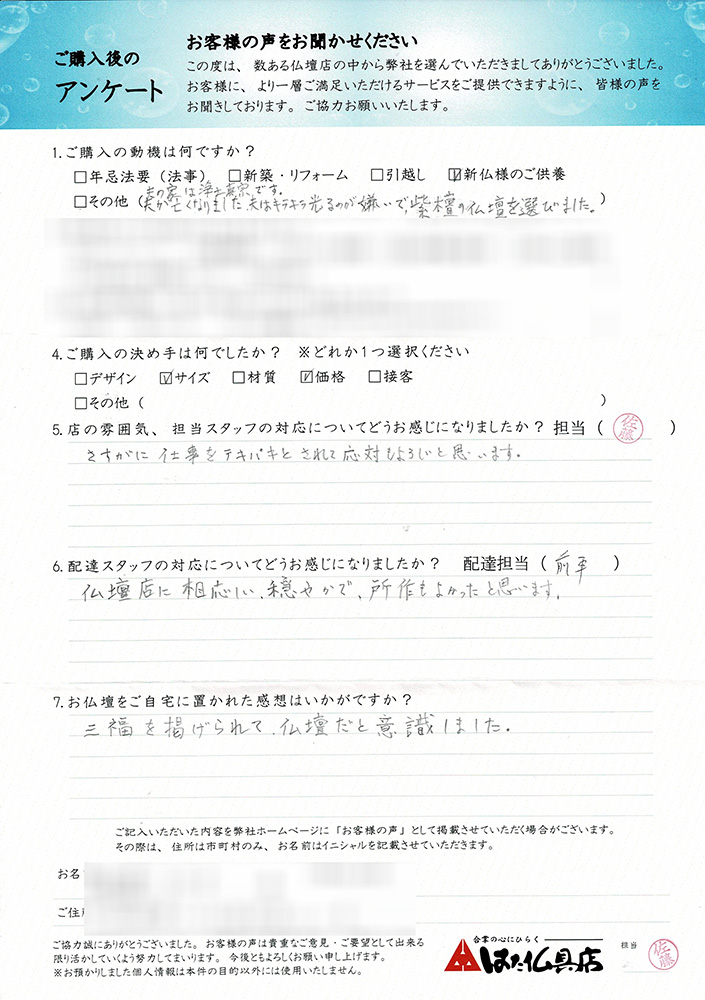 ご購入後の
アンケート
お客様の声をお聞かせください
この度は、数ある仏壇店の中から弊社を選んでいただきましてありがとうございました。
お客様に、より一層ご満足いただけるサービスをご提供できますように、皆様の声を
お聞きしております。ご協力お願いいたします。
1.ご購入の動機は何ですか？
□年忌法要（法事）　□新築・リフォーム　□引越し　☑新仏様のご供養
夫の家は浄土真宗です。
□その他（夫が亡くなりました、夫はキラキラ光るのが嫌いで、紫檀の仏壇を選びました。）
4.ご購入の決め手は何でしたか？　※どれか1つ選択ください
□デザイン　☑サイズ　□材質　☑価格　□接客
□その他（　）
5.店の雰囲気、担当スタッフの対応についてどうお感じになりましたか？ 担当（佐藤）
さすがに仕事をテキパキとされて応対もよろしいと思います。
6.配達スタッフの対応についてどうお感じになりましたか？　配達担当（前平）
仏壇店に相応しい、穏やかで、所作もよかったと思います。
7.お仏壇をご自宅に置かれた感想はいかがですか？
三福を掲げられて、仏壇だと意識しました。
ご記入いただいた内容を弊社ホームページに「お客様の声」として掲載させていただく場合がございます。
その際は、住所は市町村のみ、お名前はイニシャルを記載させていただきます。
お名
ご住
ご協力誠にありがとうございました。お客様の声は貴重なご意見・ご要望として出来る
限り活かしていくよう努力してまいります。今後ともよろしくお願い申し上げます。
※お預かりしました個人情報は本件の目的以外には使用いたしません。
合掌の心にひらく
はた仏具店
担当
佐藤